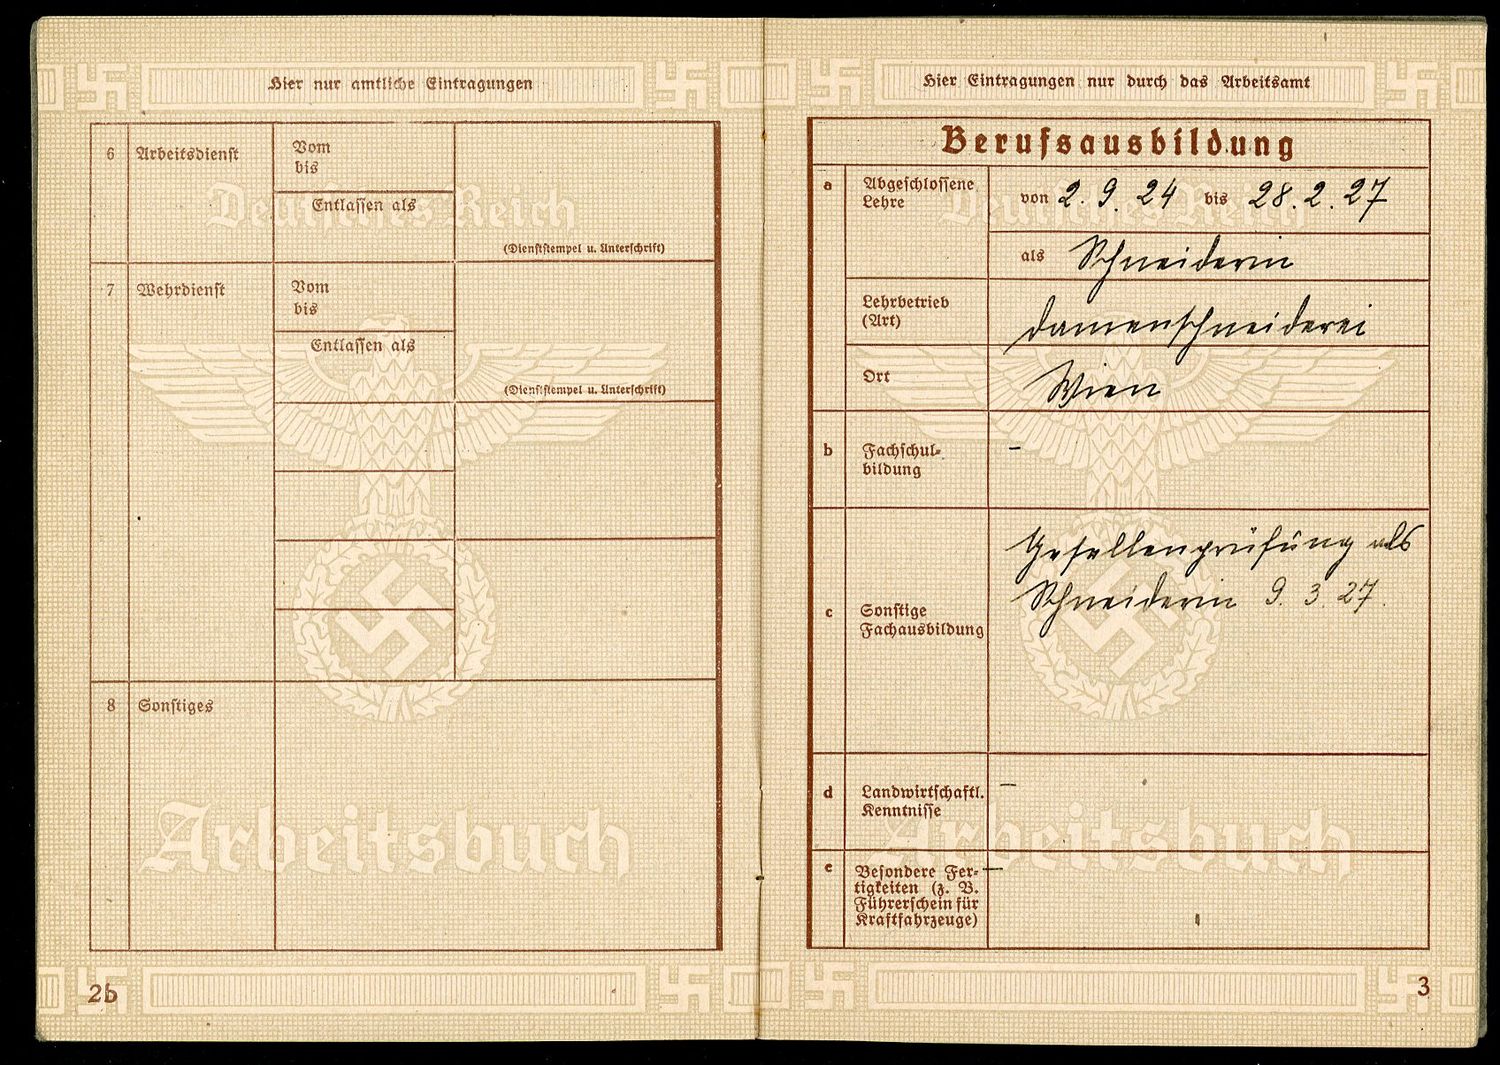 Hier nur amtliche Eintragungen
6 Arbeitsdienst
Vom
bis
Entlassen als
(Dienststempel u. Unterschrift)
7 Wehrdienst
Vom
bis
Entlassen als
(Dienststempel u. Unterschrift)
8 Sonstiges
Deutsches Reich
Arbeitsbuch
2b
Hier Eintragungen nur durch das Arbeitsamt
Berufsausbildung
a Abgeschlossene
Lehre
von 2.9.24 bis 28.2.27
als Schneiderin
Lehrbetrieb
(Art)
Damenschneiderei
Ort
Wien
b Fachschul-
bildung
–
c Sonstige
Fachausbildung
Gesellenprüfung als
Schneiderin 9.3.27.
d Landwirtschaftl.
Kenntnisse
–
e Besondere Fer-
tigkeiten (z. B.
Führerschein für
Kraftfahrzeuge)
–
Deutsches Reich
Arbeitsbuch
3